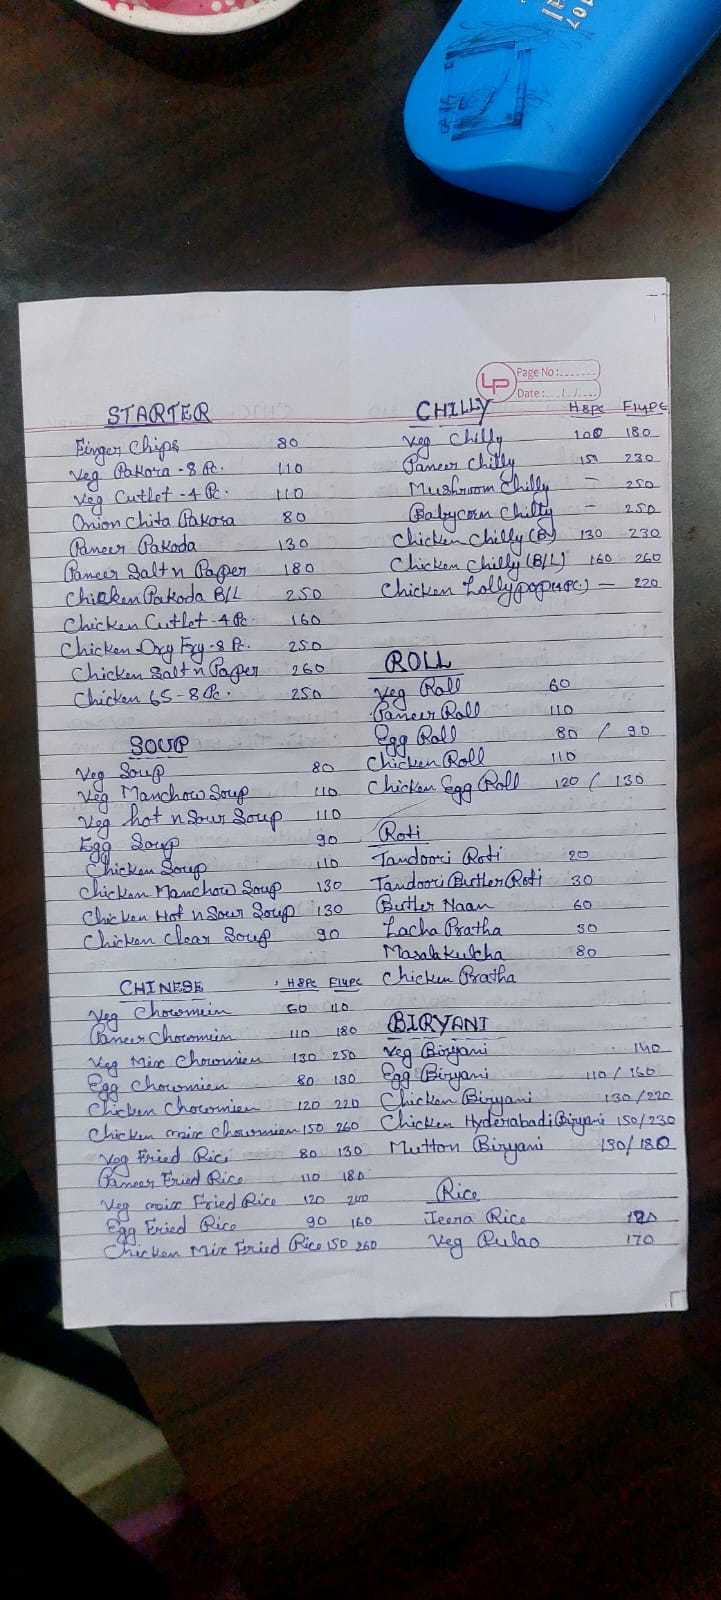 LP
Page No:.......
Date:.../.../....
STARTER
Finger Chips 80
Veg Pakora - 8 Pc. 110
Veg Cutlet - 4 Pc. 110
Onion Chita Pakora 80
Paneer Pakoda 130
Paneer Salt n Paper 180
Chicken Pakoda B/L 250
Chicken Cutlet - 4 Pc. 160
Chicken Dry Fry - 8 Pc. 250
Chicken Salt n Paper 260
Chicken 65 - 8 Pc. 250
SOUP
Veg Soup 80
Veg Manchow Soup 110
Veg hot n Sour Soup 110
Egg Soup 90
Chicken Soup 110
Chicken Manchow Soup 130
Chicken Hot n Sour Soup 130
Chicken Clear Soup 90
CHINESE H8Pc F14Pc
Veg Chowmein 60 110
Paneer Chowmien 110 180
Veg Mix Chowmien 130 250
Egg Chowmien 80 130
Chicken Chowmien 120 220
Chicken mix Chowmien 150 260
Veg Fried Rice 80 130
Paneer Fried Rice 110 180
Veg mix Fried Rice 120 200
Egg Fried Rice 90 160
Chicken Mix Fried Rice 150 260
CHILLY H8Pc F14Pc
Veg Chilly 100 180
Paneer Chilly 150 230
Mushroom Chilly - 250
Babycorn Chilly - 250
Chicken Chilly (B) 130 230
Chicken Chilly (B/L) 160 260
Chicken Lollypop (4 PC.) - 220
ROLL
Veg Roll 60
Paneer Roll 110
Egg Roll 80 / 90
Chicken Roll 110
Chicken Egg Roll 120 / 130
Roti
Tandoori Roti 20
Tandoori Butter Roti 30
Butter Naan 60
Lacha Pratha 50
Masala kulcha 80
Chicken Pratha
BIRYANI
Veg Biryani 140
Egg Biryani 110 / 160
Chicken Biryani 130 / 220
Chicken Hyderabadi Biryani 150 / 230
Mutton Biryani 130 / 180
Rice
Jeera Rice 120
Veg Pulao 170